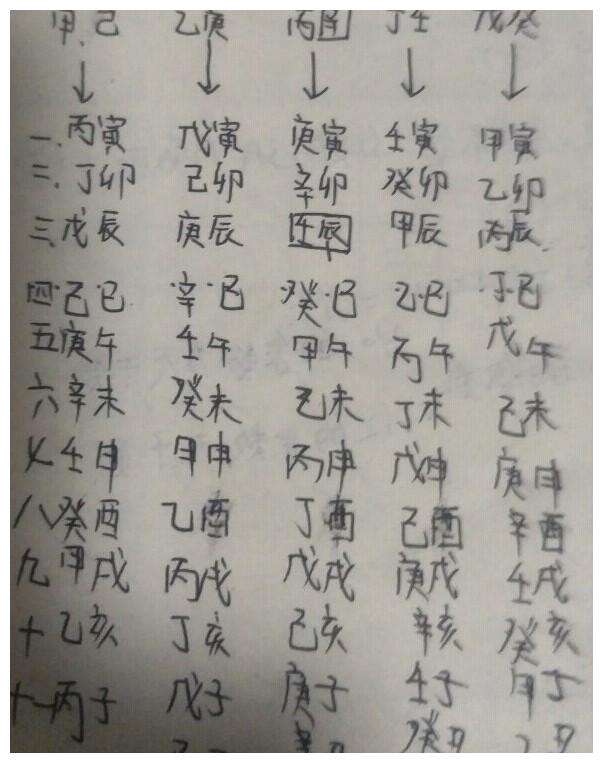 甲己 乙庚 丙 丁壬 戊癸
一.丙寅 戊寅 庚寅 壬寅 甲寅
二.丁卯 己卯 辛卯 癸卯 乙卯
三.戊辰 庚辰 壬辰 甲辰 丙辰
四.己巳 辛巳 癸巳 乙巳 丁巳
五庚午 壬午 甲午 丙午 戊午
六辛未 癸未 乙未 丁未 己未
七壬申 甲申 丙申 戊申 庚申
八癸酉 乙酉 丁酉 己酉 辛酉
九甲戌 丙戌 戊戌 庚戌 壬戌
十乙亥 丁亥 己亥 辛亥 癸亥
十一丙子 戊子 庚子 壬子 甲子
辛丑 癸丑